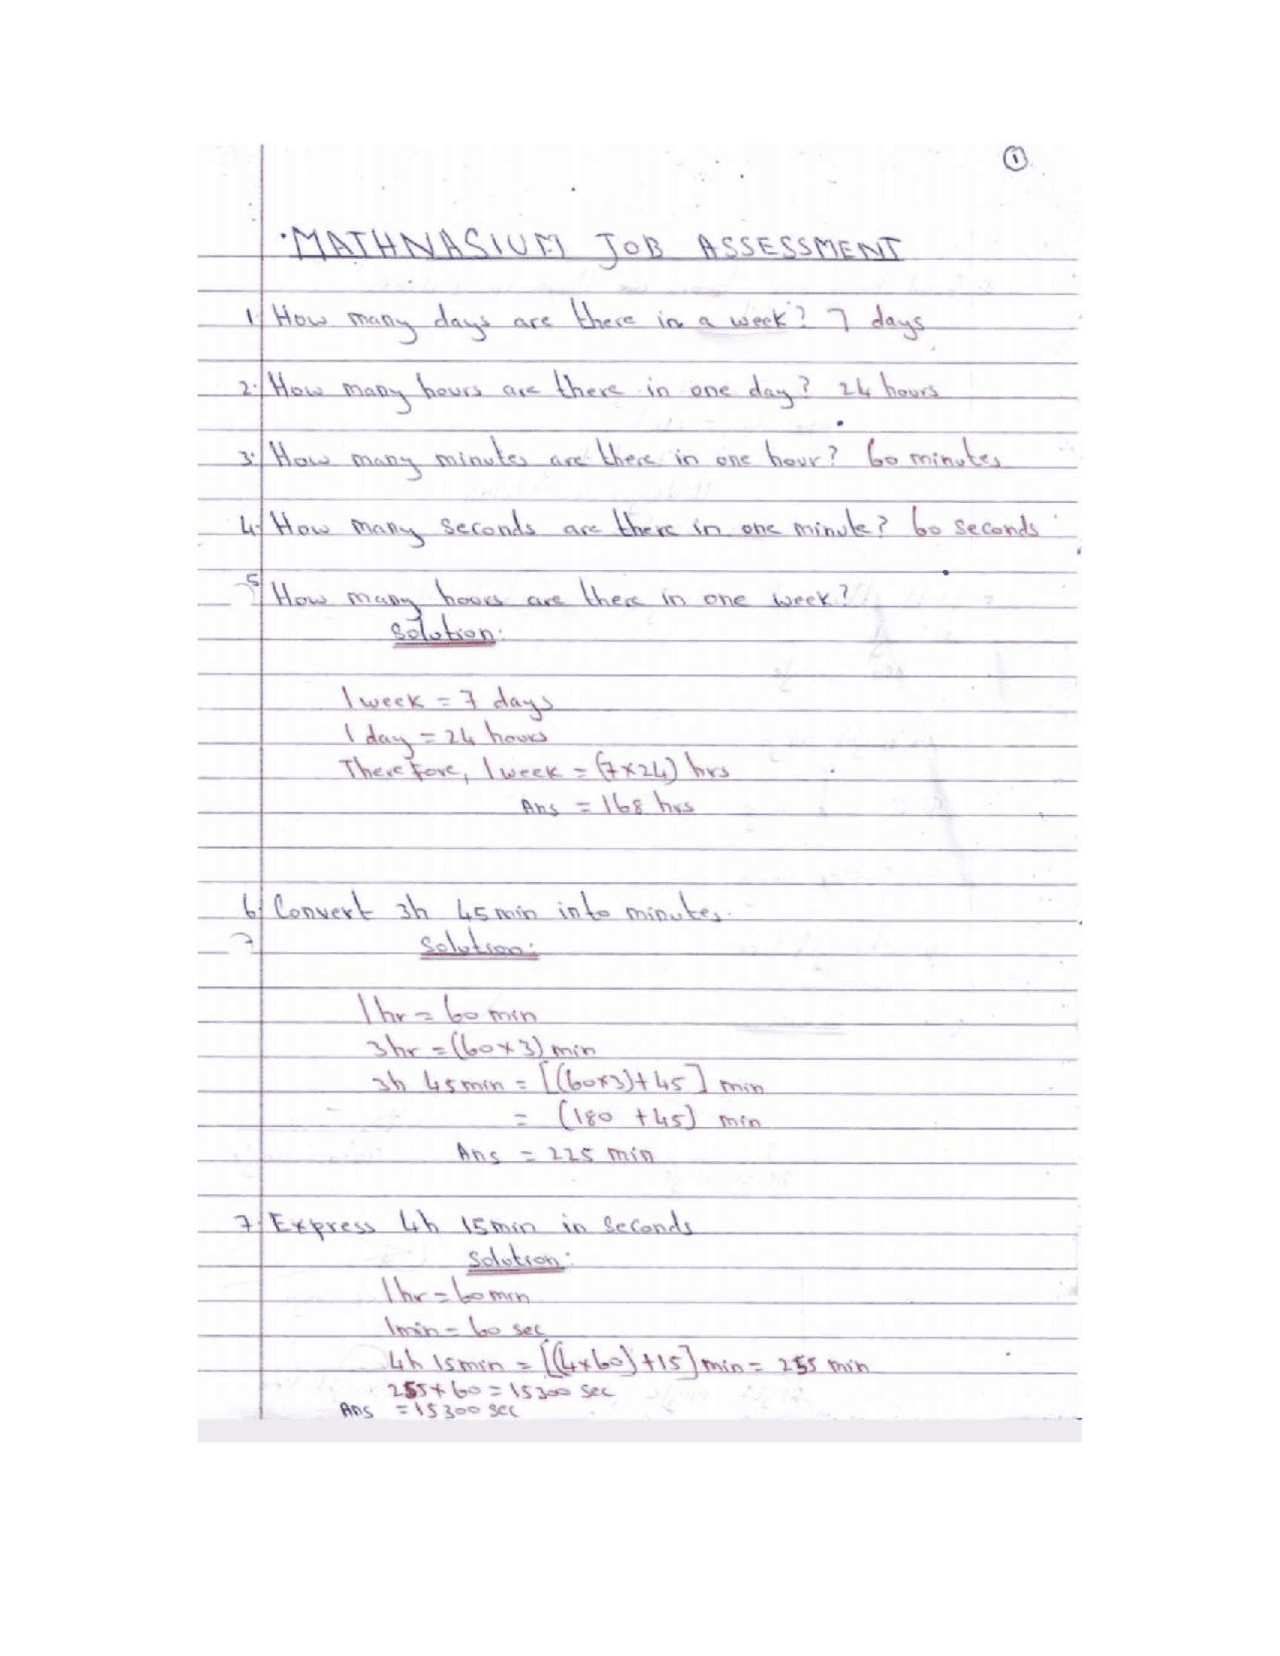 1
MATHNASIUM JOB ASSESSMENT
1. How many days are there in a week? 7 days
2. How many hours are there in one day? 24 hours
3. How many minutes are there in one hour? 60 minutes
4. How many seconds are there in one minute? 60 seconds
5 How many hours are there in one week?
Solution:
1 week = 7 days
1 day = 24 hours
Therefore, 1 week = (7×24) hrs
Ans = 168 hrs
6. Convert 3h 45min into minutes.
7 Solution:
1 hr = 60 min
3hr = (60×3) min
3h 45min = [(60×3)+45] min
= (180 +45) min
Ans = 225 min
7. Express 4h 15min in seconds
Solution:
1 hr = 60min
1min = 60 sec
4h 15min = [(4×60)+15] min = 255 min
255×60 = 15300 sec
Ans = 15300 sec